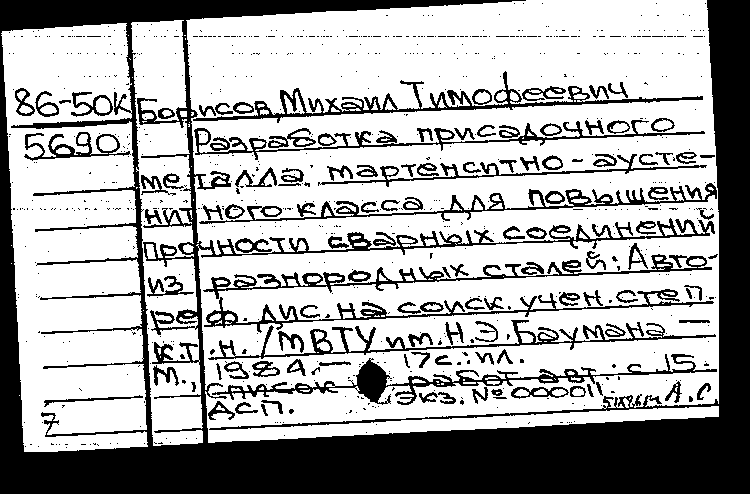 86-50к Борисов, Михаил Тимофеевич.
5690 Разработка присадочного
металла мартенситно-аусте-
нитного класса для повышения
прочности сварных соединений
из разнородных сталей: Авто-
реф. дис. на соиск. учен. степ.
к.т.н. /МВТУ им. Н.Э. Баумана. —
М., 1984. — 17с.: ил.
список работ авт.: с. 15.
ДСП. Экз. № 000011 А.С.
7